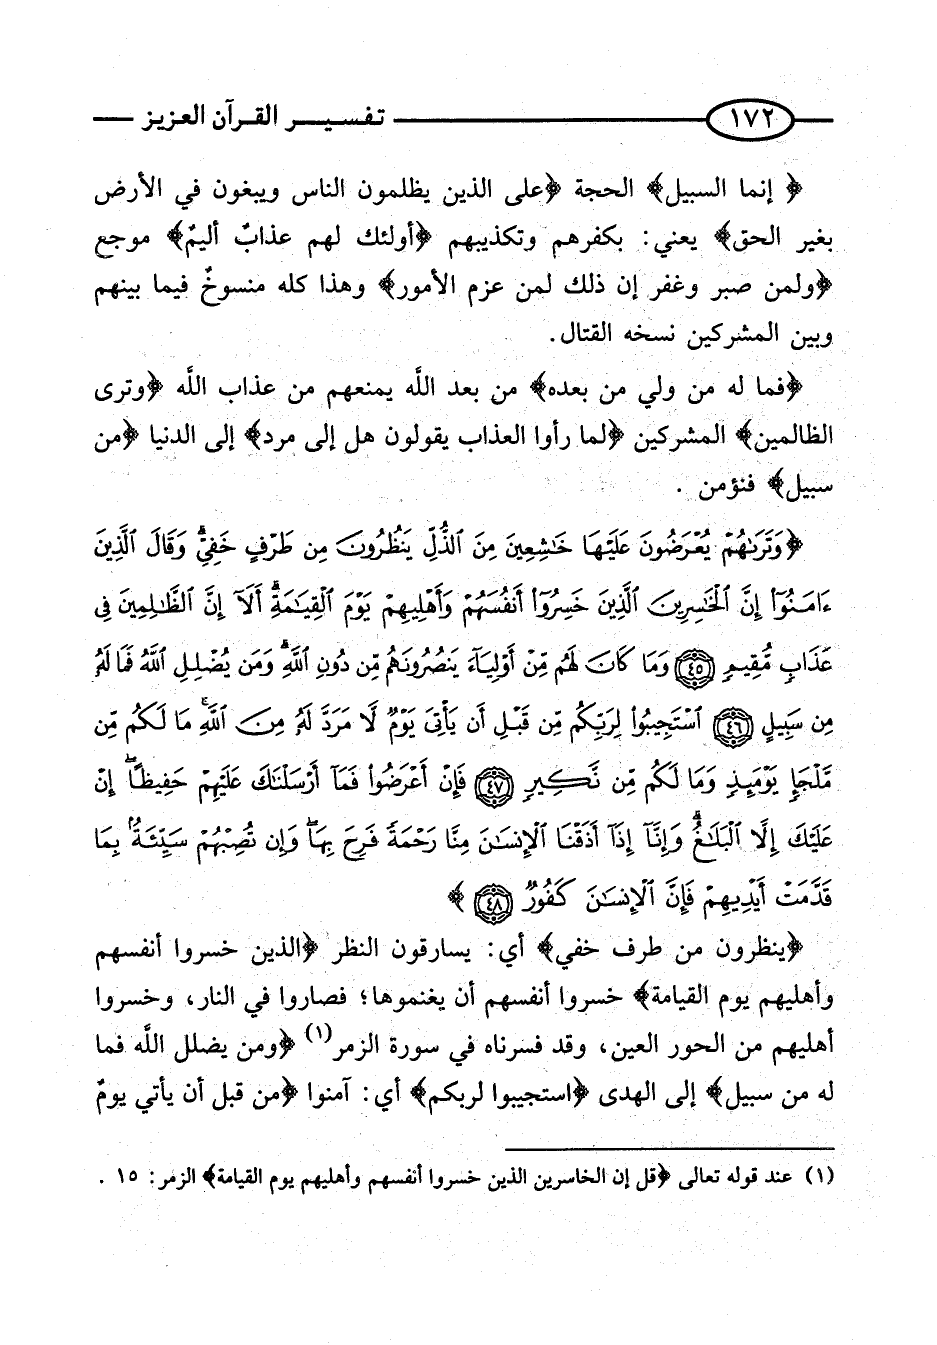 ١٧٢ تفسير القرآن العزيز
﴿ إنما السبيل﴾ الحجة ﴿على الذين يظلمون الناس ويبغون في الأرض
بغير الحق﴾ يعني: بكفرهم وتكذيبهم ﴿أولئك لهم عذابٌ أليمٌ﴾ موجع
﴿ولمن صبر وغفر إن ذلك لمن عزم الأمور﴾ وهذا كله منسوخٌ فيما بينهم
وبين المشركين نسخه القتال.
﴿فما له من ولي من بعده﴾ من بعد اللَّه يمنعهم من عذاب اللَّه ﴿وترى
الظالمين﴾ المشركين ﴿لما رأوا العذاب يقولون هل إلى مرد﴾ إلى الدنيا ﴿من
سبيل﴾ فنؤمن .
﴿وَتَرَىٰهُمْ يُعْرَضُونَ عَلَيْهَا خَٰشِعِينَ مِنَ ٱلذُّلِّ يَنظُرُونَ مِن طَرْفٍ خَفِيٍّۗ وَقَالَ ٱلَّذِينَ
ءَامَنُوٓا۟ إِنَّ ٱلْخَٰسِرِينَ ٱلَّذِينَ خَسِرُوٓا۟ أَنفُسَهُمْ وَأَهْلِيهِمْ يَوْمَ ٱلْقِيَٰمَةِۗ أَلَآ إِنَّ ٱلظَّٰلِمِينَ فِى
عَذَابٍ مُّقِيمٍ ٤٥ وَمَا كَانَ لَهُم مِّنْ أَوْلِيَآءَ يَنصُرُونَهُم مِّن دُونِ ٱللَّهِۗ وَمَن يُضْلِلِ ٱللَّهُ فَمَا لَهُۥ
مِن سَبِيلٍ ٤٦ ٱسْتَجِيبُوا۟ لِرَبِّكُم مِّن قَبْلِ أَن يَأْتِىَ يَوْمٌ لَّا مَرَدَّ لَهُۥ مِنَ ٱللَّهِۚ مَا لَكُم مِّن
مَّلْجَإٍ يَوْمَئِذٍ وَمَا لَكُم مِّن نَّكِيرٍ ٤٧ فَإِنْ أَعْرَضُوا۟ فَمَآ أَرْسَلْنَٰكَ عَلَيْهِمْ حَفِيظًاۖ إِنْ
عَلَيْكَ إِلَّا ٱلْبَلَٰغُۗ وَإِنَّآ إِذَآ أَذَقْنَا ٱلْإِنسَٰنَ مِنَّا رَحْمَةً فَرِحَ بِهَاۖ وَإِن تُصِبْهُمْ سَيِّئَةٌۢ بِمَا
قَدَّمَتْ أَيْدِيهِمْ فَإِنَّ ٱلْإِنسَٰنَ كَفُورٌ ٤٨ ﴾
﴿ينظرون من طرف خفي﴾ أي: يسارقون النظر ﴿الذين خسروا أنفسهم
وأهليهم يوم القيامة﴾ خسروا أنفسهم أن يغنموها؛ فصاروا في النار، وخسروا
أهليهم من الحور العين، وقد فسرناه في سورة الزمر(١) ﴿ومن يضلل اللَّه فما
له من سبيل﴾ إلى الهدى ﴿استجيبوا لربكم﴾ أي: آمنوا ﴿من قبل أن يأتي يومٌ
(١) عند قوله تعالى ﴿قل إن الخاسرين الذين خسروا أنفسهم وأهليهم يوم القيامة﴾ الزمر: ١٥ .